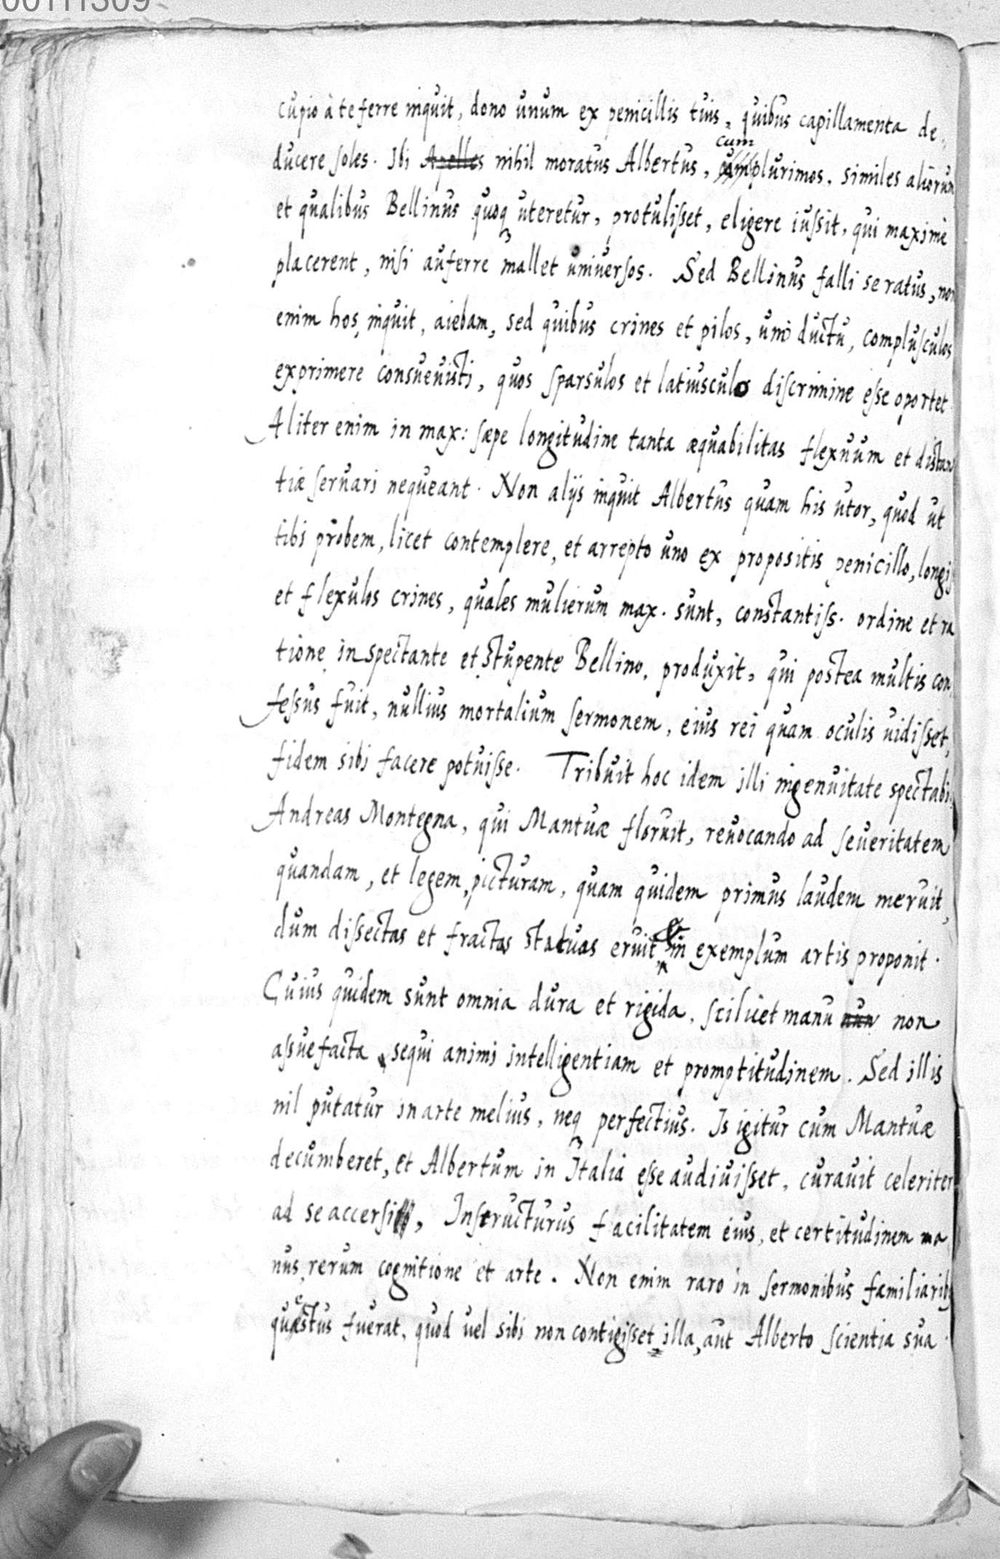 00111309
cupio à te ferre inquit, dono unum ex penicillis tuis, quibus capillamenta de-
ducere soles. Ibi Apelles nihil moratus Albertus, cum plurimos, similes aliorum
et qualibus Bellinus quoq uteretur, protulisset, eligere iussit, qui maximè
placerent, nisi auferre mallet universos. Sed Bellinus falli se ratus, non
enim hos inquit, aiebam, sed quibus crines et pilos, uno ductu, complusculos
exprimere consuevisti, quos sparsulos et latiusculo discrimine esse oportet
Aliter enim in max: sæpe longitudine tanta æquabilitas flexuum et distan
tiæ servari nequeant. Non alijs inquit Albertus quam his utor, quod ut
tibi probem, licet contemplere, et arrepto uno ex propositis penicillo, longis
et flexulos crines, quales mulierum max. sunt, constantiss. ordine et ra
tione inspectante et stupente Bellino, produxit, qui postea multis con
fessus fuit, nullius mortalium sermonem, eius rei quam oculis uidisset,
fidem sibi facere potuisse. Tribuit hoc idem illi ingenuitate spectabi
Andreas Montegna, qui Mantuæ floruit, reuocando ad seueritatem
quandam, et legem picturam, quam quidem primus laudem meruit,
dum dissectas et fractas statuas eruit & in exemplum artis proponit.
Cuius quidem sunt omnia dura et rigida, scilicet manu non
assuefacta sequi animi intelligentiam et promptitudinem. Sed illis
nil putatur in arte melius, neq perfectius. Is igitur cum Mantuæ
decumberet, et Albertum in Italia esse audiuisset, curauit celeriter
ad se accersi, Instructurus facilitatem eius, et certitudinem ma
nus, rerum cognitione et arte. Non enim raro in sermonibus familiarib
quæstus fuerat, quod uel sibi non contigisset illa, aut Alberto scientia sua